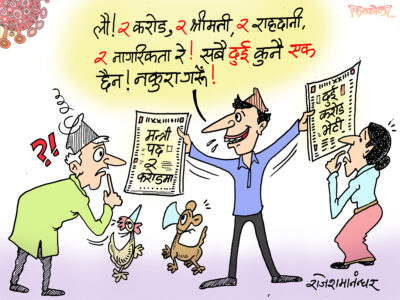 लौ! २ करोड, २ श्रीमती, २ राहदानी,
२ नागरिकता रे! सबै दुई कुनै एक
छैन! नकुरा गरूँ!
मन्त्री
पद
२
करोडमा
दुई
करोड
भेटी
राजेशमानन्धर